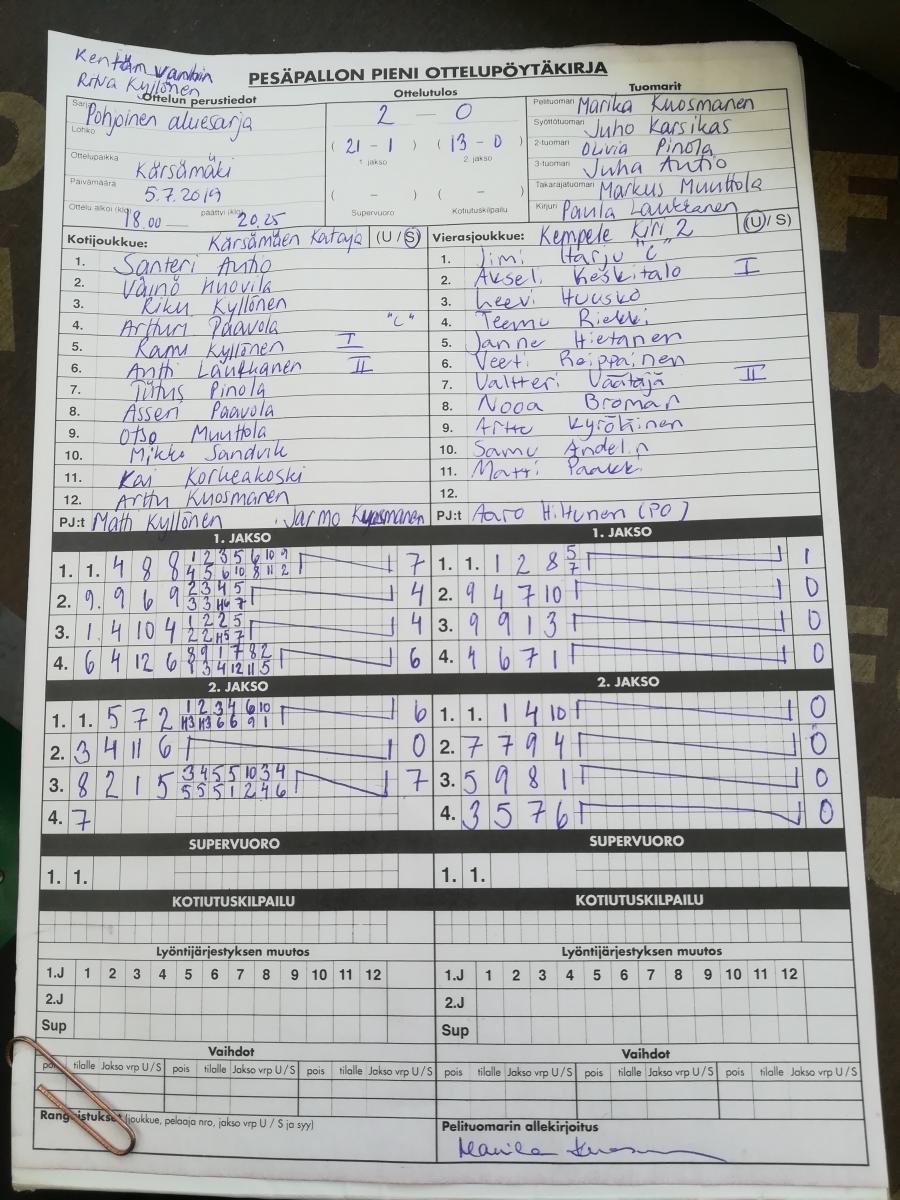 Kentän vanhin
Ritva Kyllönen
PESÄPALLON PIENI OTTELUPÖYTÄKIRJA
Ottelun perustiedot
Sarja Pohjoinen aluesarja
Lohko
Ottelupaikka Kärsämäki
Päivämäärä 5.7.2019
Ottelu alkoi (klo) 18.00 päättyi (klo) 20.25
Ottelutulos
2 — 0
( 21 - 1 ) ( 13 - 0 )
1. jakso 2. jakso
( - ) ( - )
Supervuoro Kotiutuskilpailu
Tuomarit
Pelituomari Marika Kuosmanen
Syöttötuomari Juho Karsikas
2-tuomari Olivia Pinola
3-tuomari Juha Autio
Takarajatuomari Markus Muuttola
Kirjuri Paula Laukkanen
Kotijoukkue: Kärsämäen Kataja (U / S)
1. Santeri Autio
2. Väinö Huovila
3. Riku Kyllönen
4. Artturi Paavola "C"
5. Rami Kyllönen I
6. Antti Laukkanen II
7. Titus Pinola
8. Asseri Paavola
9. Otso Muuttola
10. Mikko Sandvik
11. Kai Korkeakoski
12. Arttu Kuosmanen
PJ:t Matti Kyllönen Jarmo Kuosmanen
Vierasjoukkue: Kempele Kiri 2 (U / S)
1. Jimi Harju "C"
2. Akseli Keskitalo I
3. Leevi Huusko
4. Teemu Riekki
5. Janne Hietanen
6. Veeti Reippainen
7. Valtteri Väätäjä II
8. Nooa Broman
9. Arttu Kyröläinen
10. Samu Andelin
11. Matti Paakki
12.
PJ:t Aaro Hiltunen (PO)
1. JAKSO
1. 1. 4 8 8 1 2 3 5 6 10 9 7
4 5 6 10 8 11 2
2. 9 9 6 9 2 3 4 5 4
3 3 H6 7
3. 1 4 10 4 1 2 2 5 4
2 2 H5 7
4. 6 4 12 6 8 9 1 7 8 2 6
1 3 4 12 11 5
1. JAKSO
1. 1. 1 2 8 5 1
7
2. 9 4 7 10 0
3. 9 9 1 3 0
4. 4 6 7 1 0
2. JAKSO
1. 1. 5 7 2 1 2 3 4 6 10 6
H3 H3 6 6 9 1
2. 3 4 11 6 0
3. 8 2 1 5 3 4 5 5 10 3 4 7
5 5 5 1 2 4 6
4. 7
2. JAKSO
1. 1. 1 4 10 0
2. 7 7 9 4 0
3. 5 9 8 1 0
4. 3 5 7 6 0
SUPERVUORO
1. 1.
SUPERVUORO
1. 1.
KOTIUTUSKILPAILU
KOTIUTUSKILPAILU
Lyöntijärjestyksen muutos
1.J 1 2 3 4 5 6 7 8 9 10 11 12
2.J
Sup
Lyöntijärjestyksen muutos
1.J 1 2 3 4 5 6 7 8 9 10 11 12
2.J
Sup
Vaihdot
pois tilalle Jakso vrp U / S pois tilalle Jakso vrp U / S pois tilalle Jakso vrp U / S
Vaihdot
pois tilalle Jakso vrp U / S pois tilalle Jakso vrp U / S pois tilalle Jakso vrp U / S
Rangaistukset (joukkue, pelaaja nro, jakso vrp U / S ja syy)
Pelituomarin allekirjoitus